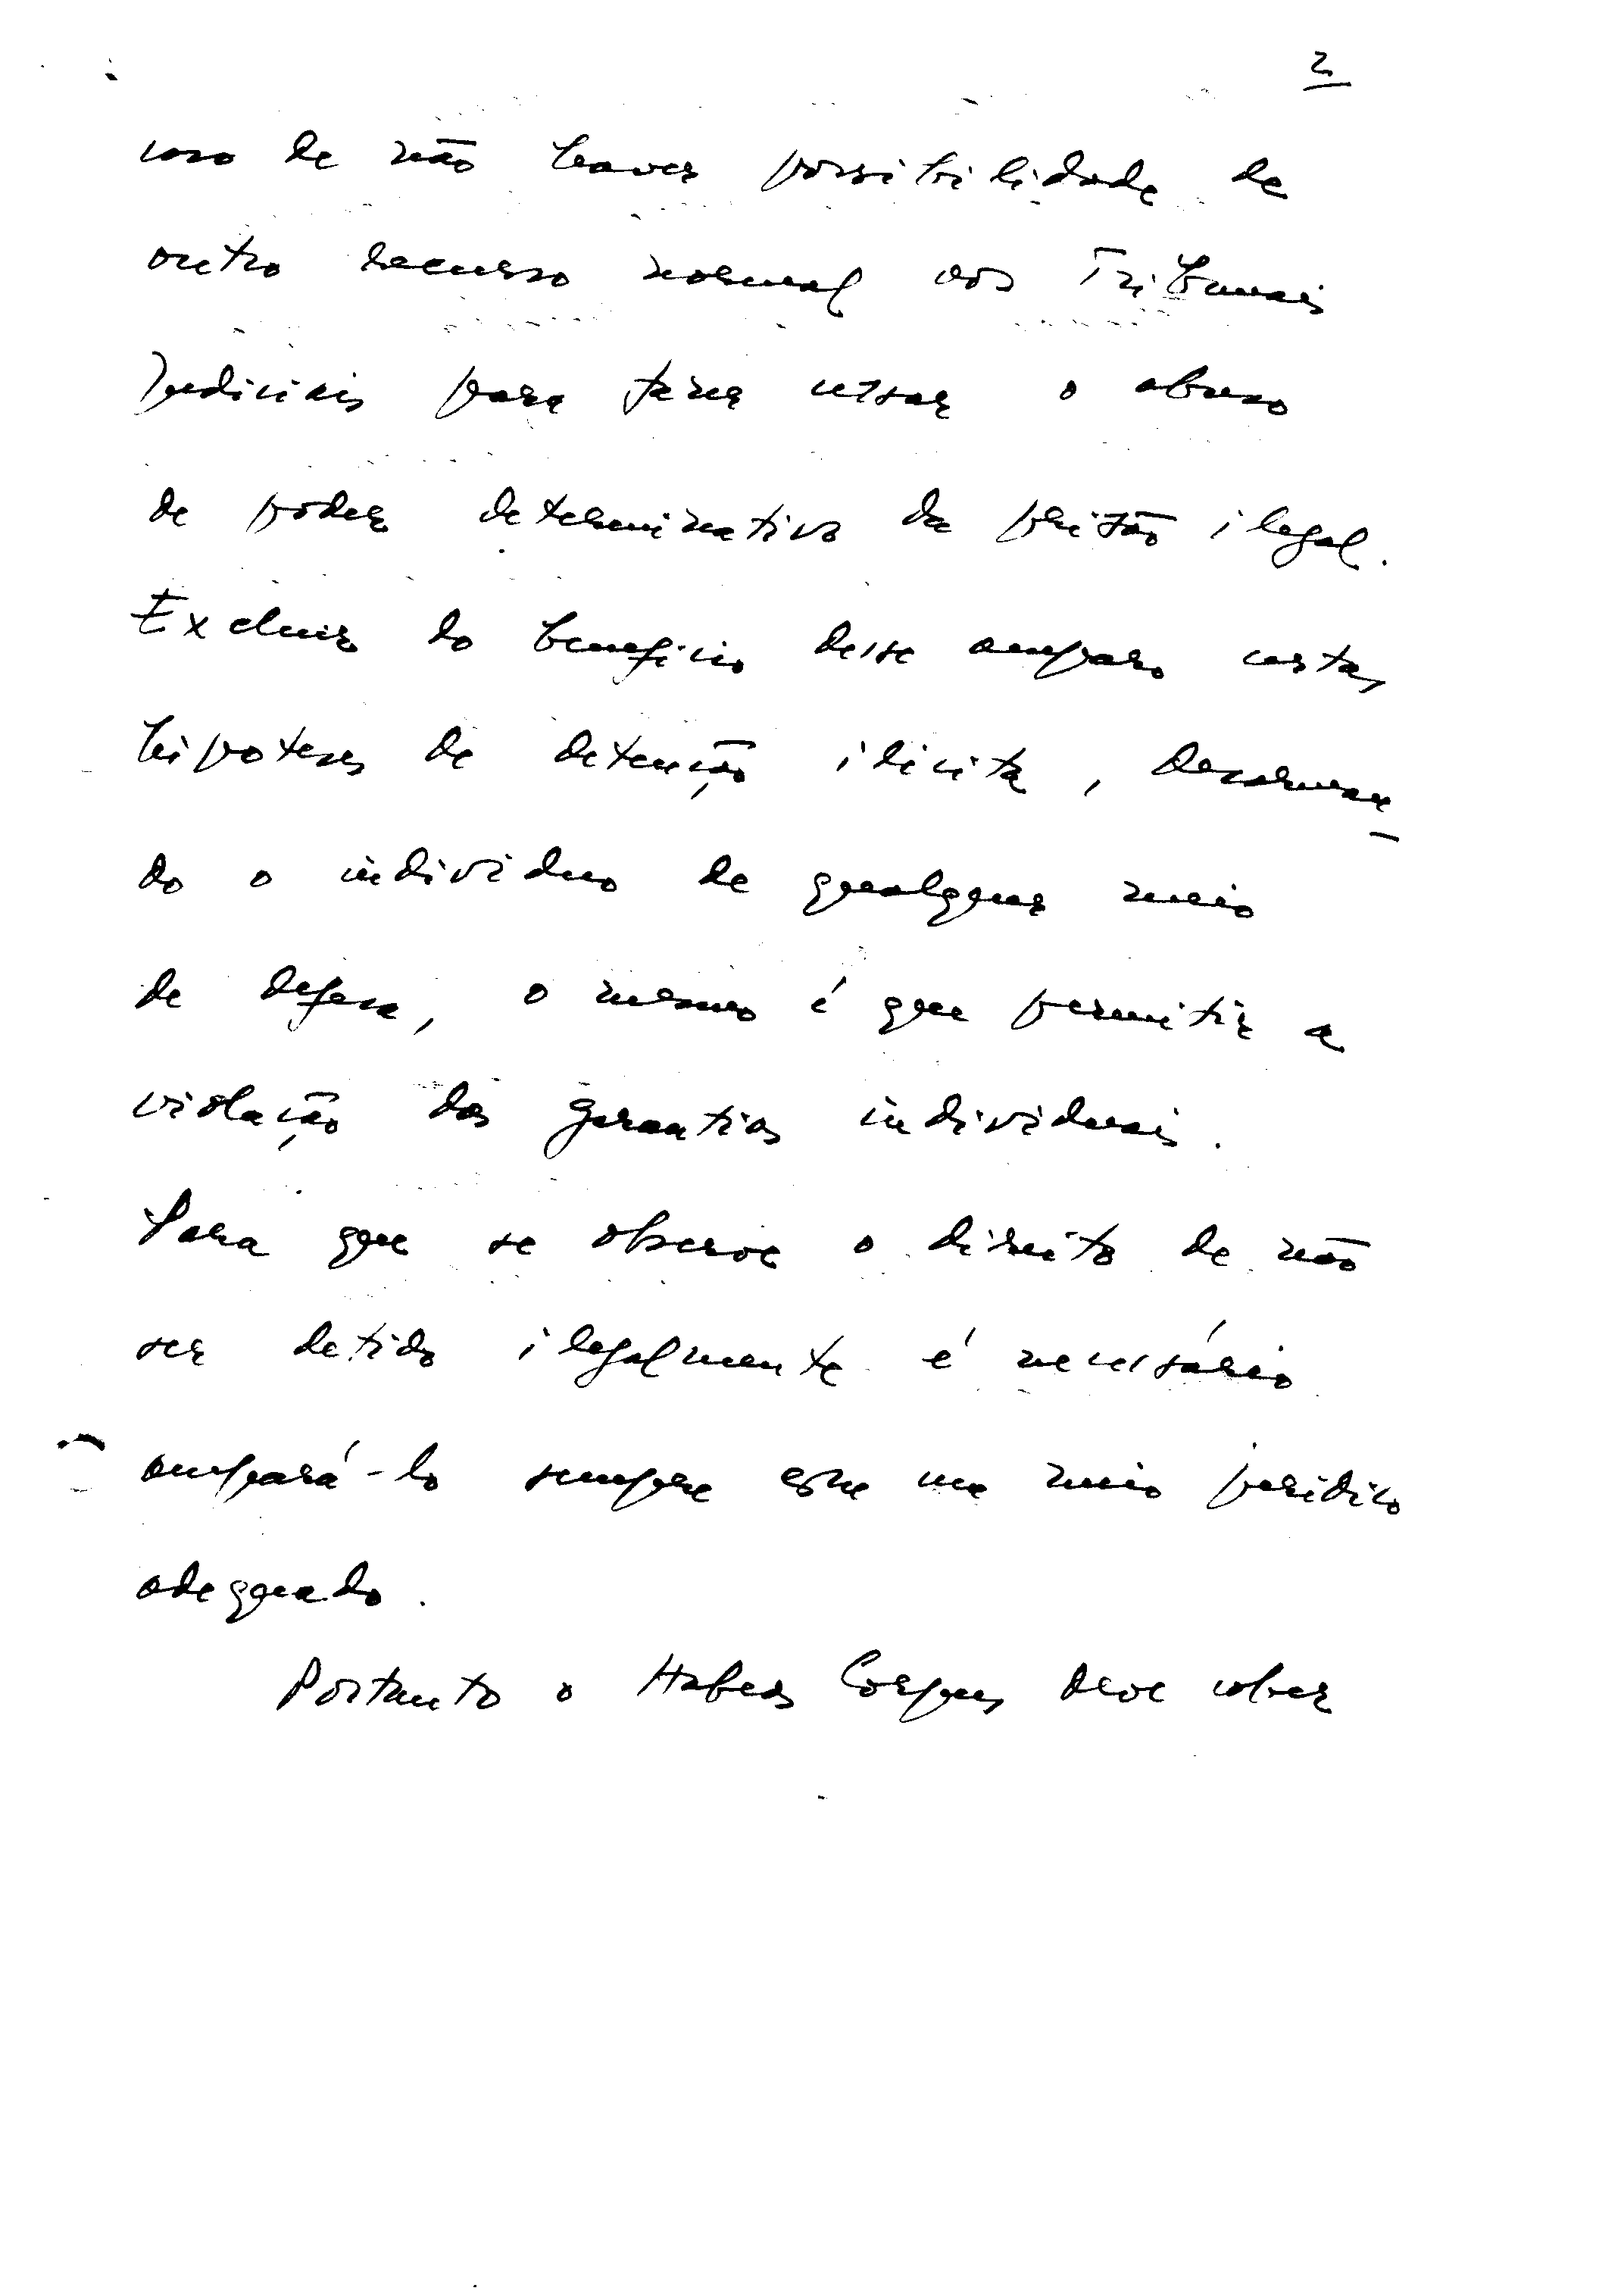 2
caso de não haver possibilidade de
outro recurso normal aos Tribunais
Judiciais para fazer cessar o abuso
de poder determinativo da prisão ilegal.
Excluir do beneficio desse amparo certas
hipoteses de detenção ilicita, desarman-
do o individuo de qualquer meio
de defesa, o mesmo é que permitir a
violação das garantias individuais.
Para que se observe o direito de não
ser detido ilegalmente é necessário
ampará-lo sempre com um meio juridico
adequado.
Portanto o Habeas Corpus deve caber